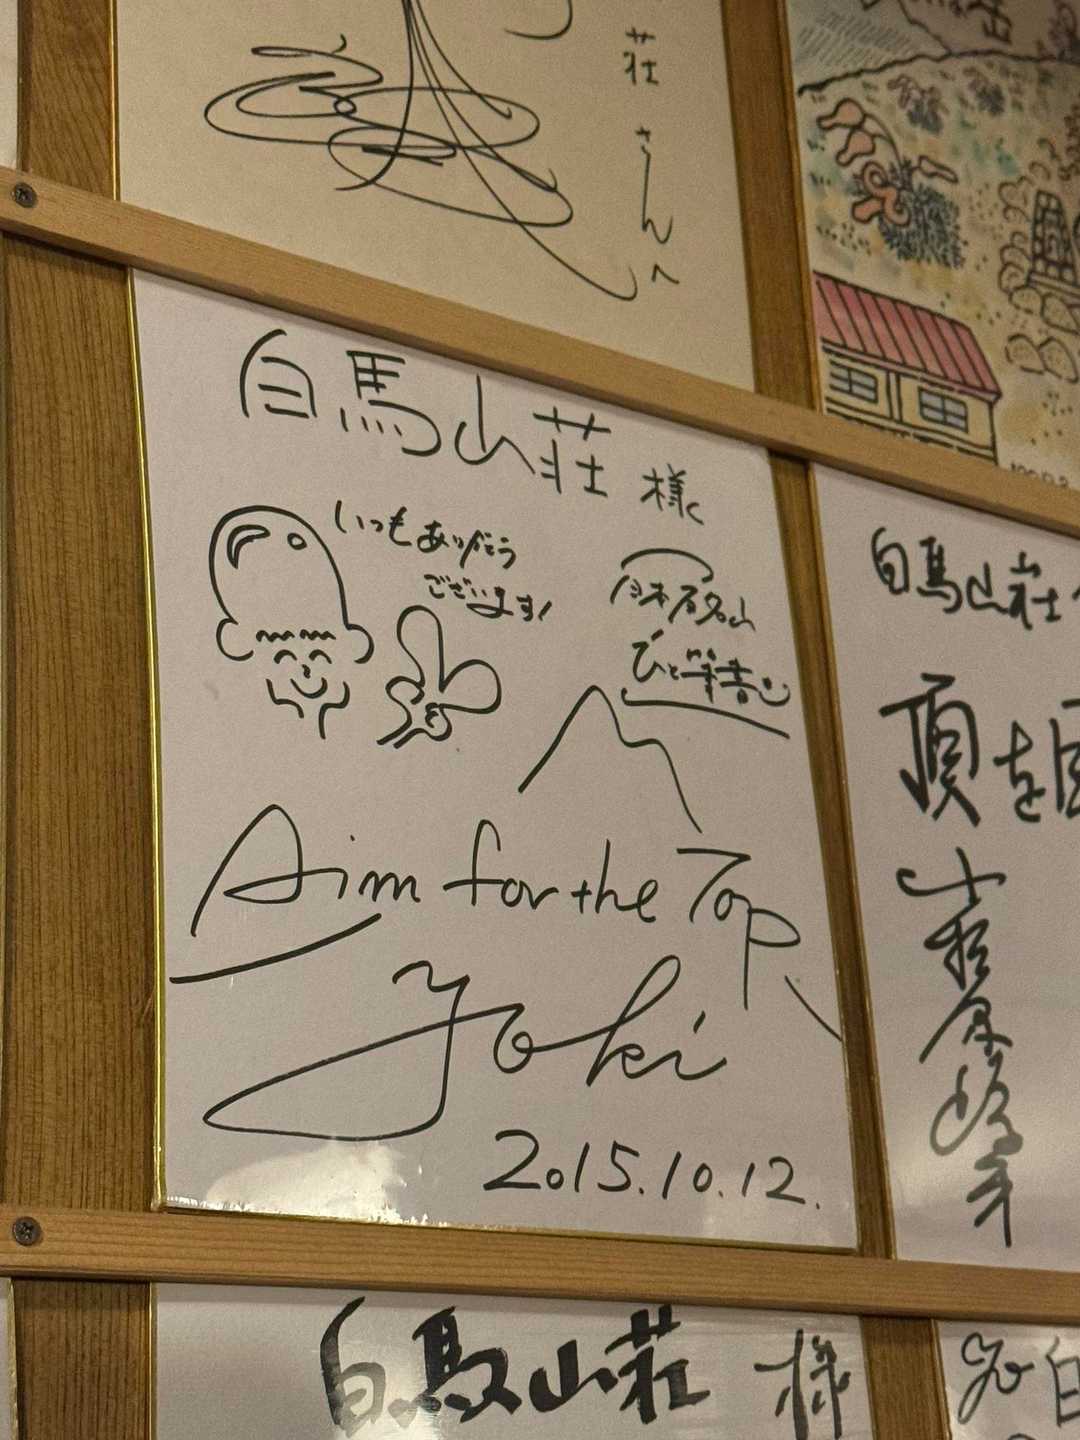 荘さんへ
白馬山荘様
いつもありがとう
ございます!
日本百名山
ひと筆書き
Aim for the Top
Yoki
2015.10.12.
白馬山荘
頂を
白馬山荘様